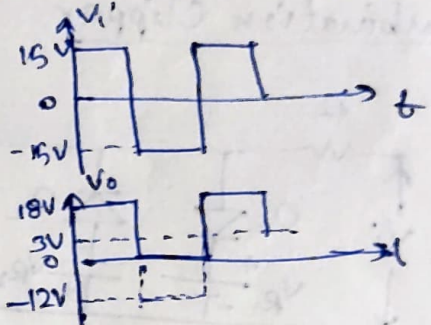 Vi
15V
0
t
-15V
Vo
18V
3V
0
t
-12V